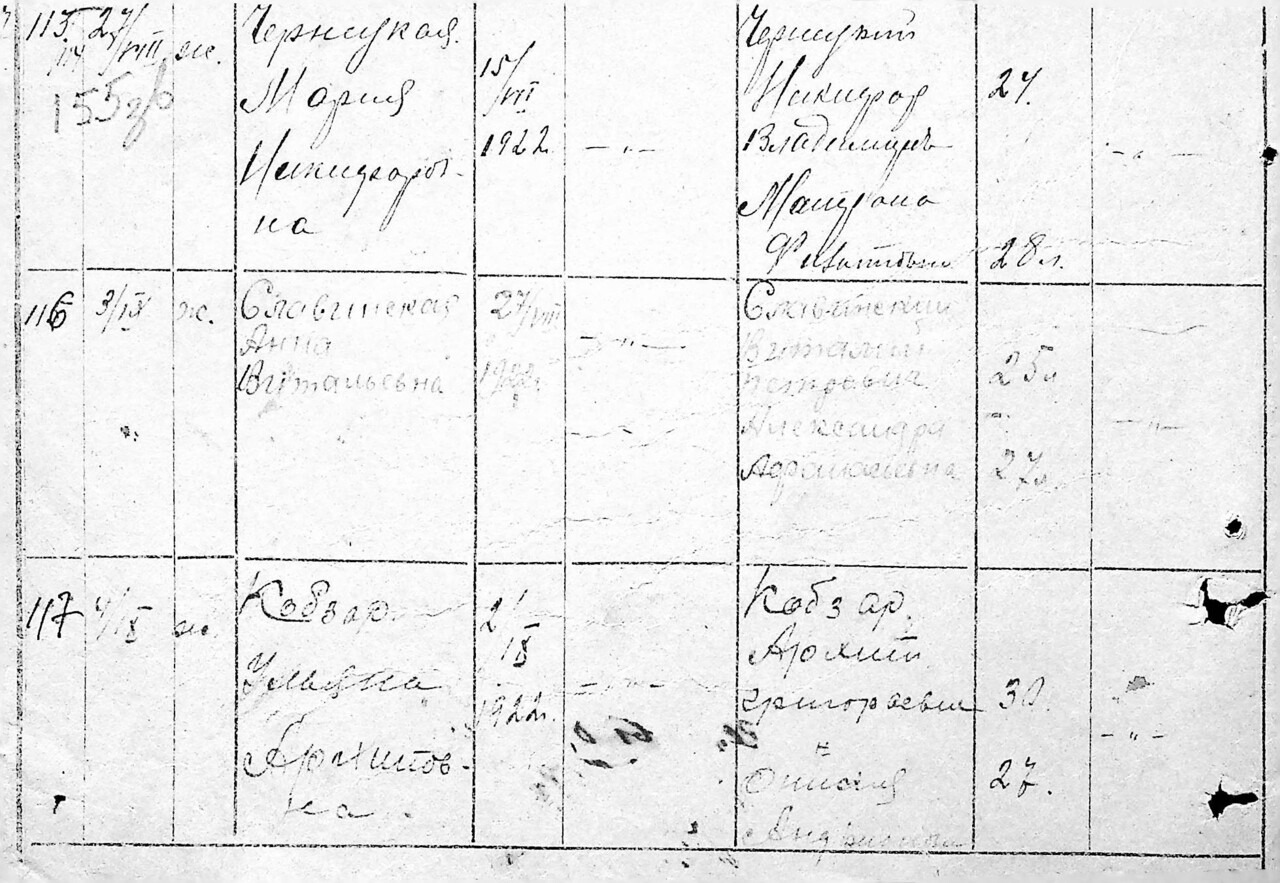 115 27/VIII ж.
155
Черницкая
Мария
Никифоров-
на
15/VIII
1922
— " —
Черницкий
Никифор
Владимиров
Матрона
27.
28 л.
— " —
116 3/IX ж.
Славинская
Анна
Витальевна
27/VIII
1922г.
— " —
— " —
Славинский
Виталий
Петрович
Александра
Афанасьевна
25 л
27 л
— " —
117 4/IX ж.
Кобзар
Ульяна
Архипов-
на
2/IX
1922г.
— " —
Кобзар
Архип
Григорьевич
и
30.
27.
— " —